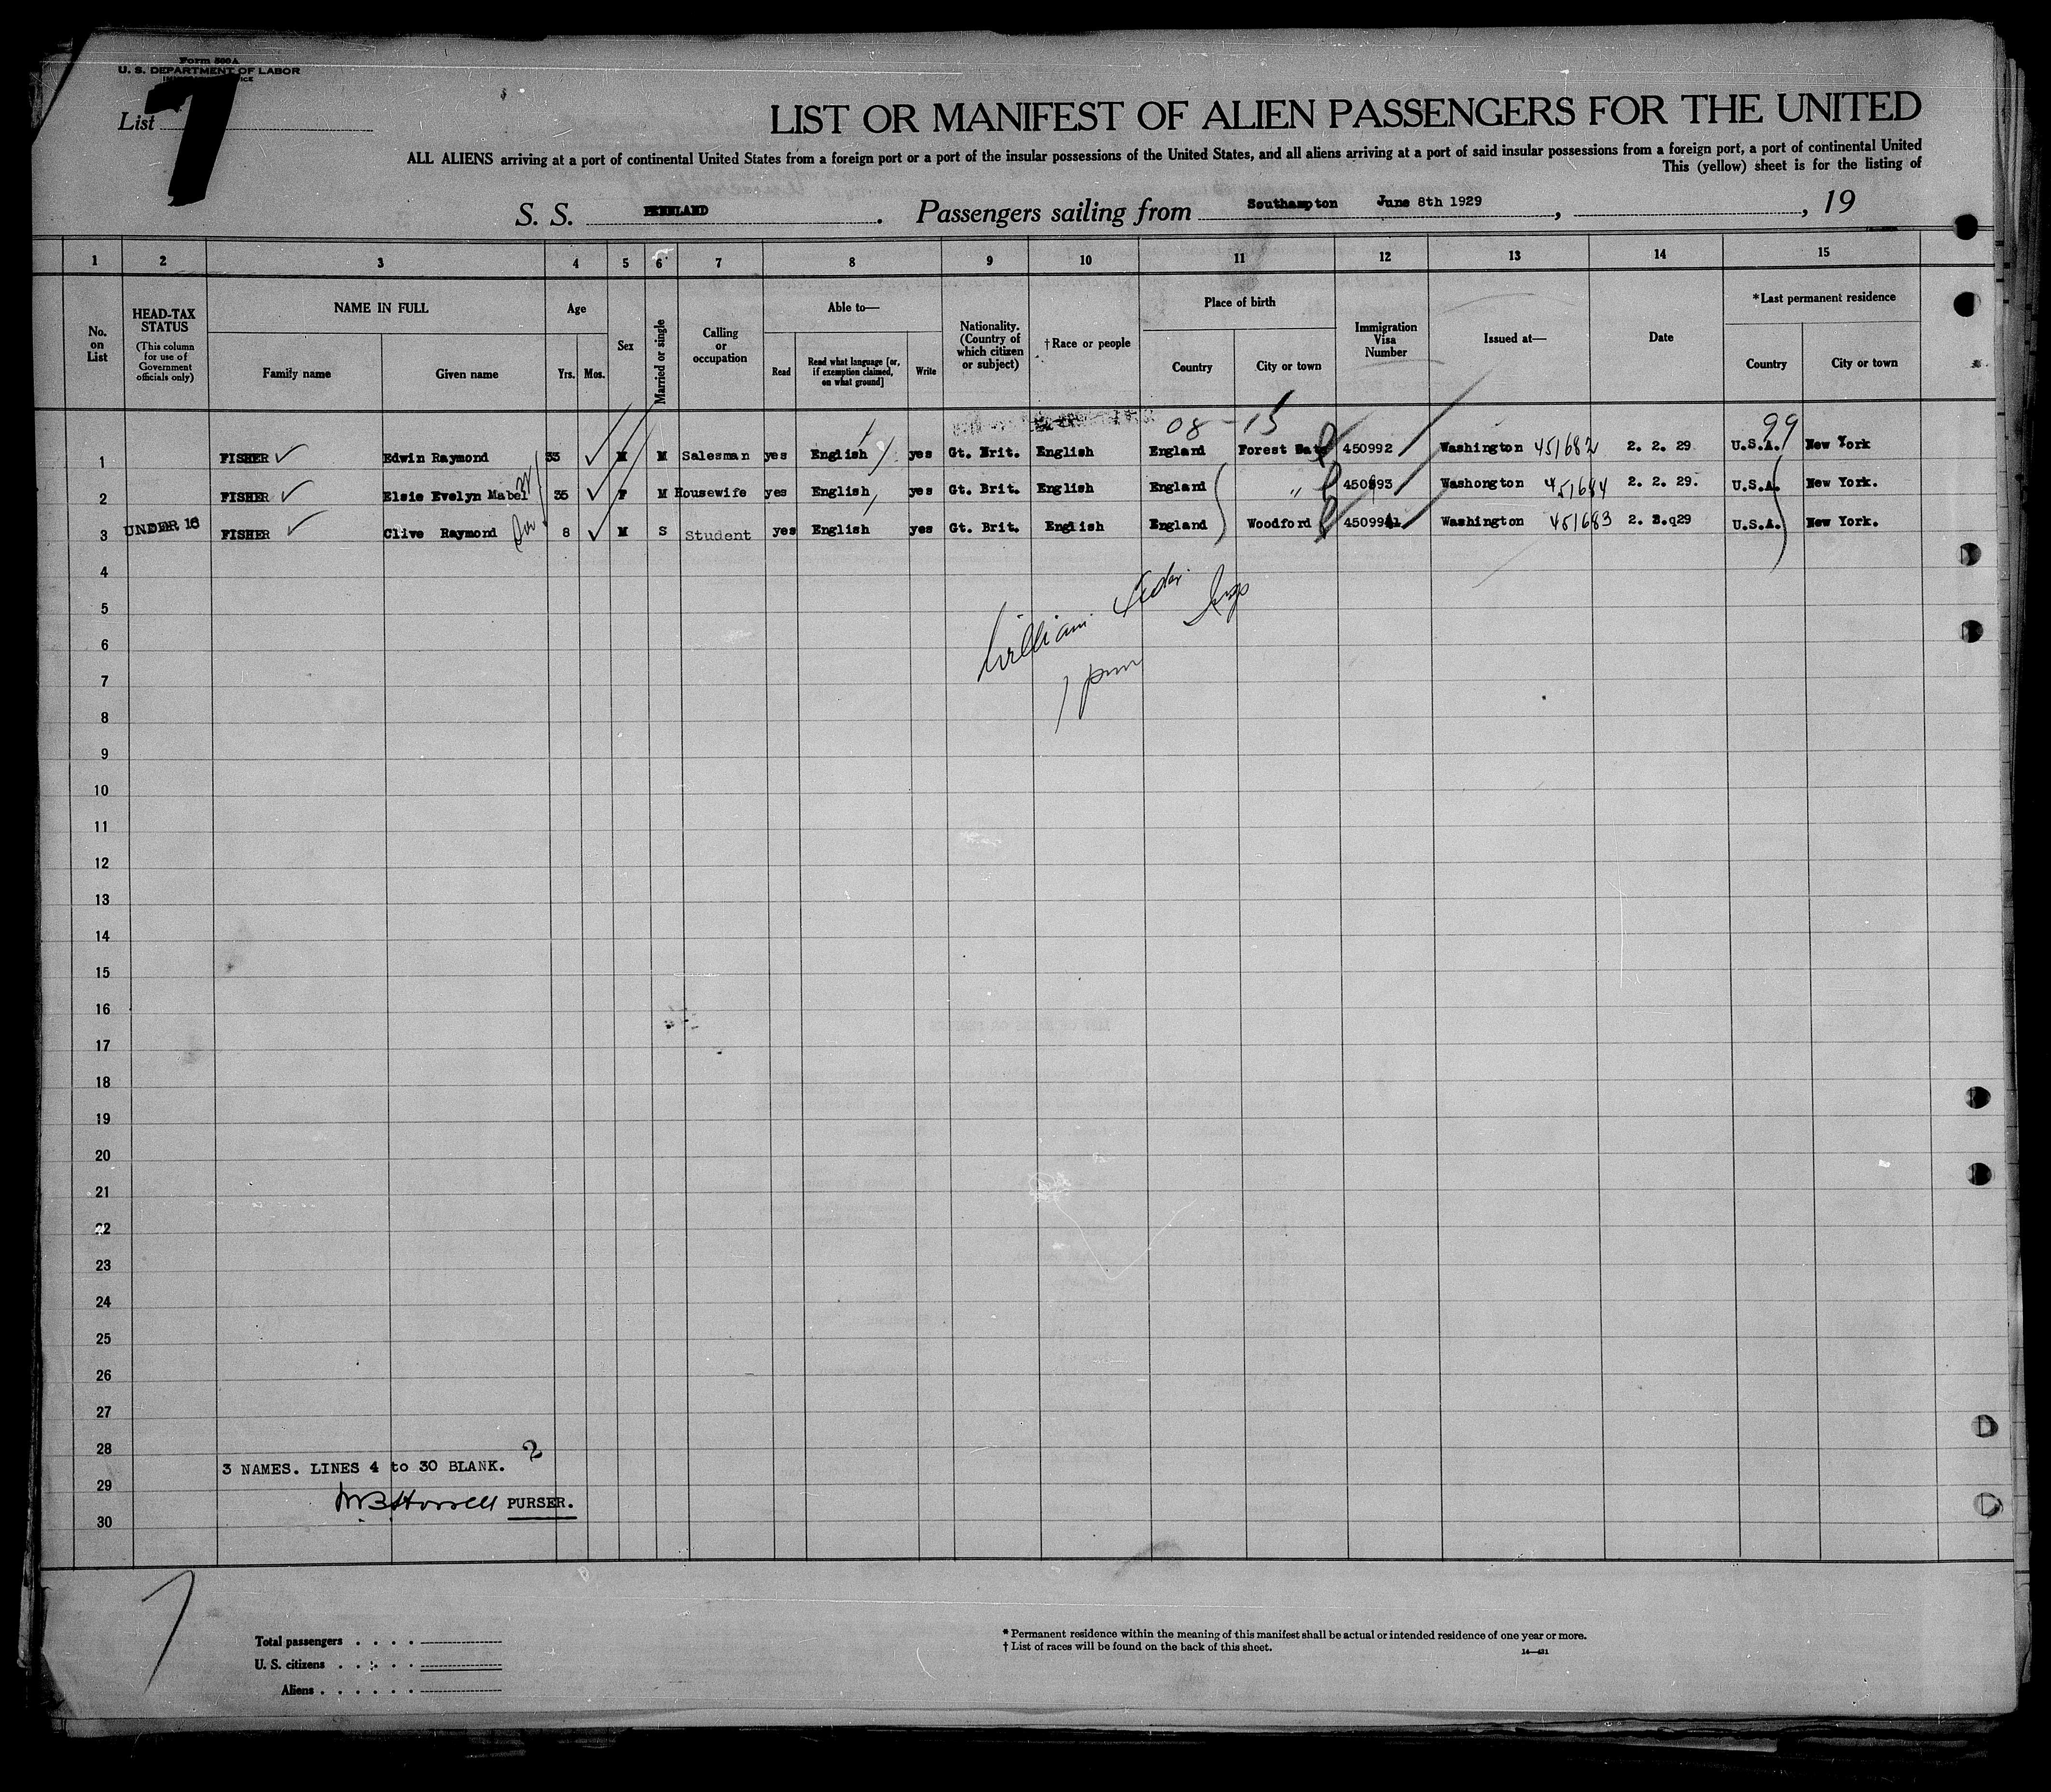 Form 500 A
U. S. DEPARTMENT OF LABOR
List 7
LIST OR MANIFEST OF ALIEN PASSENGERS FOR THE UNITED
ALL ALIENS arriving at a port of continental United States from a foreign port or a port of the insular possessions of the United States, and all aliens arriving at a port of said insular possessions from a foreign port, a port of continental United
This (yellow) sheet is for the listing of
S. S. PENNLAND. Passengers sailing from Southampton June 8th 1929, , 19
1 2 3 4 5 6 7 8 9 10 11 12 13 14 15
No. on List
HEAD-TAX STATUS (This column for use of Government officials only)
NAME IN FULL
Family name Given name
Age
Yrs. Mos.
Sex
Married or single
Calling or occupation
Able to—
Read Read what language [or, if exemption claimed, on what ground] Write
Nationality. (Country of which citizen or subject)
†Race or people
Place of birth
Country City or town
Immigration Visa Number
Issued at—
Date
*Last permanent residence
Country City or town
08 - 15 99
1 FISHER Edwin Raymond 35 M M Salesman yes English yes Gt. Brit. English England Forest Gate 450992 Washington 451682 2. 2. 29 U.S.A. New York
2 FISHER Elsie Evelyn Mabel 35 F M Housewife yes English yes Gt. Brit. English England " 450993 Washongton 451684 2. 2. 29. U.S.A. New York.
3 UNDER 16 FISHER Clive Raymond 8 M S Student yes English yes Gt. Brit. English England Woodford 450994 Washington 451683 2. 2.q29 U.S.A. New York.
4
5
William
6
7
8
9
10
11
12
13
14
15
16
17
18
19
20
21
22
23
24
25
26
27
28
3 NAMES. LINES 4 to 30 BLANK. 2
29
PURSER.
30
7
Total passengers . . . .
U. S. citizens . . . . .
Aliens . . . . . .
* Permanent residence within the meaning of this manifest shall be actual or intended residence of one year or more.
† List of races will be found on the back of this sheet.
14—431